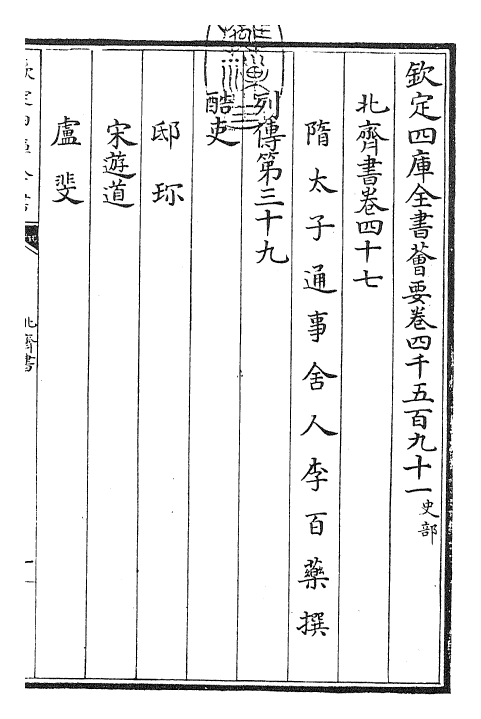 欽定四庫全書薈要卷四千五百九十一史部
北齊書卷四十七
隋太子通事舍人李百藥撰
列傳第三十九
酷吏
邸珎
宋遊道
盧斐
北齊書
一